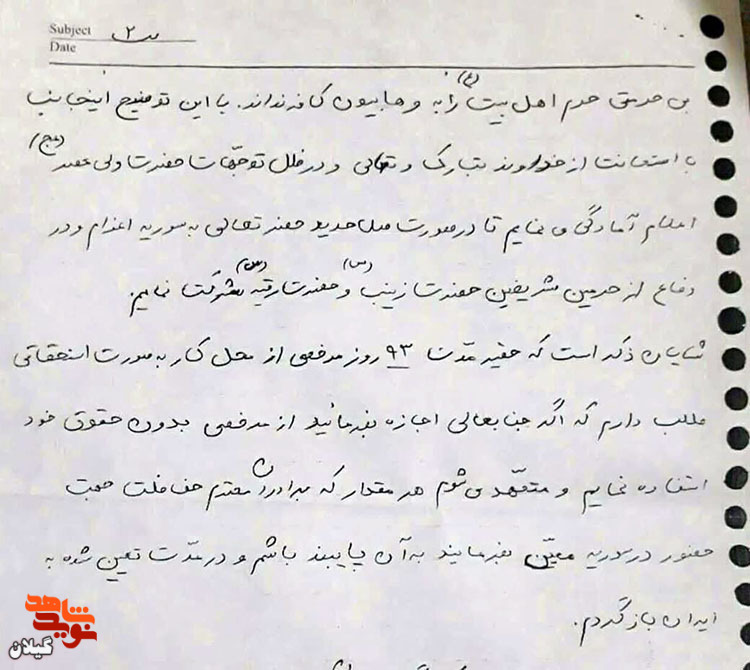 Subject ۲
Date
بی حرمتی حرم اهل بیت (ع) را به وهابیون کافر نداند. با این توضیح اینجانب
با استعانت از خداوند تبارک و تعالی و در ظلل توجهات حضرت ولی عصر (عج)
اعلام آمادگی می نمایم تا در صورت صلاحدید حضرتعالی به سوریه اعزام و در
دفاع از حرمین شریفین حضرت زینب (س) و حضرت رقیه (س) شرکت نمایم.
شایان ذکر است که حقیر مدت ۹۳ روز مرخصی از محل کار به صورت استحقاقی
طلب دارم که اگر جنابعالی اجازه بفرمائید از مرخصی بدون حقوق خود
استفاده نمایم و متعهد می شوم هر مقدار که برادران محترم حفاظت جهت
حضور در سوریه معین بفرمایند به آن پایبند باشم و در مدت تعیین شده به
ایران بازگردم.
نوید شاهد
گیلان